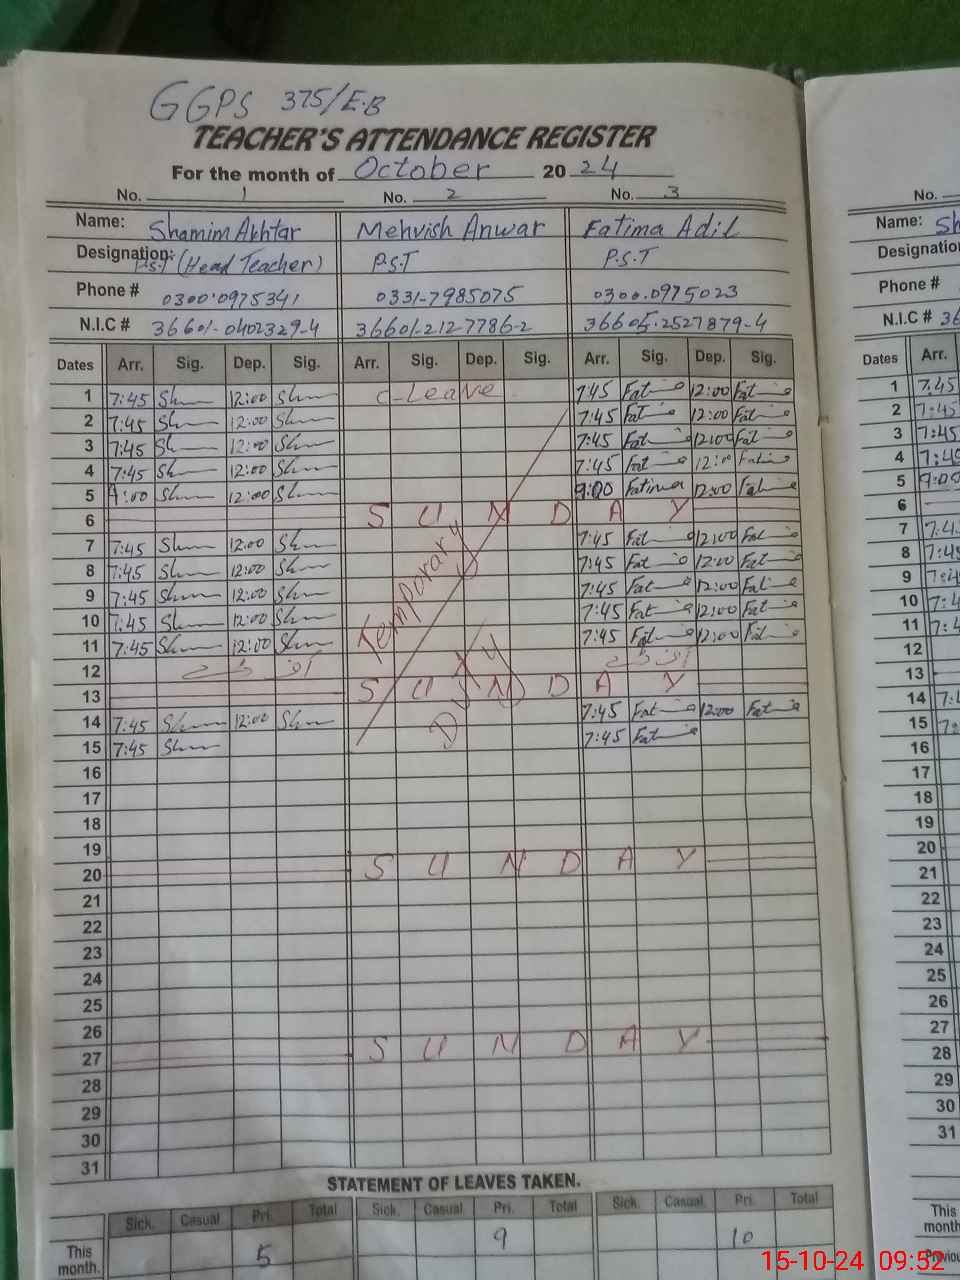 GGPS 375/E.B
TEACHER'S ATTENDANCE REGISTER
For the month of October 2024
No. 1 No. 2 No. 3
Name: Shamim Akhtar Mehvish Anwar Fatima Adil
Designation: P.S.T (Head Teacher) P.S.T P.S.T
Phone # 0300.0975341 0331-7985075 0300.0975023
N.I.C # 36601-0402329-4 36601-212-7786-2 36605.2527879-4
Dates Arr. Sig. Dep. Sig. Arr. Sig. Dep. Sig. Arr. Sig. Dep. Sig.
1 7:45 Shm 12:00 Shm C-Leave 7:45 Fatima 12:00 Fatima
2 7:45 Shm 12:00 Shm 7:45 Fatima 12:00 Fatima
3 7:45 Sh 12:00 Shm 7:45 Fatima 12:00 Fatima
4 7:45 Shm 12:00 Shm 7:45 Fatima 12:00 Fatima
5 9:00 Shm 12:00 Shm 9:00 Fatima 12:00 Fatima
6 SUNDAY
7 7:45 Shm 12:00 Shm Temporary 7:45 Fatima 12:00 Fatima
8 7:45 Shm 12:00 Shm 7:45 Fatima 12:00 Fatima
9 7:45 Shm 12:00 Shm 7:45 Fatima 12:00 Fatima
10 7:45 Shm 12:00 Shm 7:45 Fatima 12:00 Fatima
11 7:45 Shm 12:00 Shm Duty 7:45 Fatima 12:00 Fatima
12
13 SUNDAY
14 7:45 Shm 12:00 Shm 7:45 Fatima 12:00 Fatima
15 7:45 Shm 7:45 Fatima
16
17
18
19
20 SUNDAY
21
22
23
24
25
26
27 SUNDAY
28
29
30
31
STATEMENT OF LEAVES TAKEN.
Sick. Casual Pri. Total Sick. Casual Pri. Total Sick. Casual Pri. Total
This month. 5 9 10
No.
Name: Sh
Designation
Phone #
N.I.C # 36
Dates Arr.
1 7:45
2 7:45
3 7:45
4 7:45
5 9:00
6
7 7:4
8 7:45
9 7:4
10 7:4
11 7:4
12
13
14 7:4
15 7:
16
17
18
19
20
21
22
23
24
25
26
27
28
29
30
31
This month
15-10-24 09:52